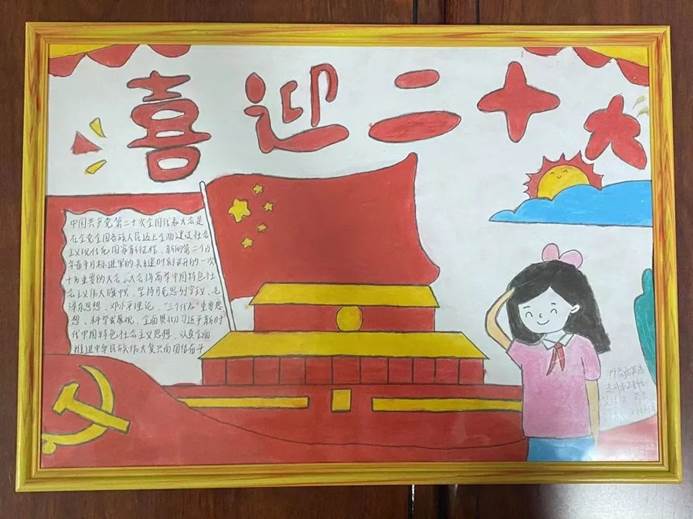 喜迎二十大
中国共产党第二十次全国代表大会是
在全党全国各族人民迈上全面建设社会
主义现代化国家新征程、向第二个百
年奋斗目标进军的关键时刻召开的一次
十分重要的大会。大会将高举中国特色社
会主义伟大旗帜，坚持马克思列宁主义、毛
泽东思想、邓小平理论、“三个代表”重要思
想、科学发展观，全面贯彻习近平新时
代中国特色社会主义思想，认真全面